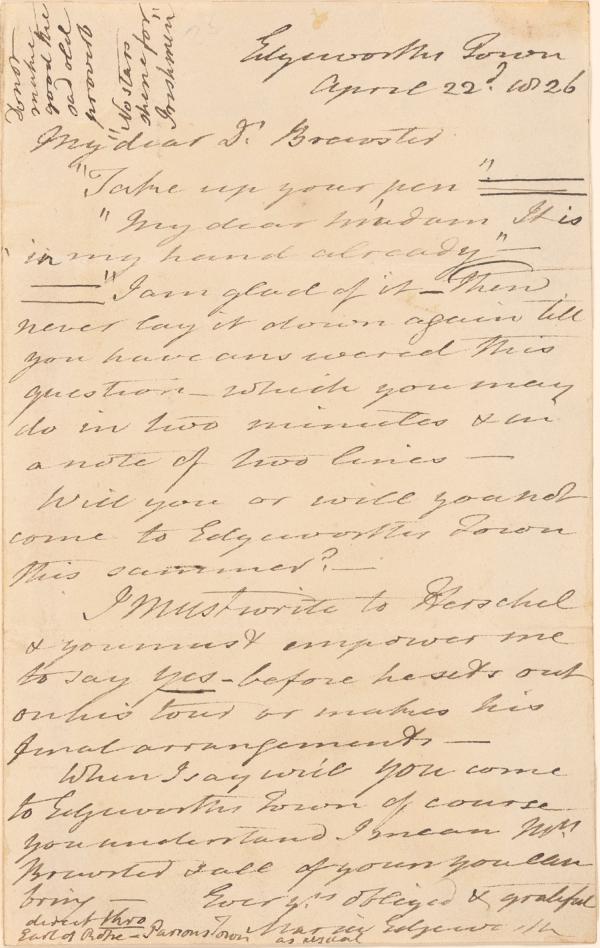 Do not
make
good the
sad old
proverb
"No stars
shine for
Irishmen"
Edgeworths Town
April 22d. 1826
My dear Dr. Brewster
"Take up your pen"
"My dear madam It is
in my hand already"—
"I am glad of it – Then
never lay it down again till
you have answered this
question – which you may
do in two minutes & in
a note of two lines —
Will you or will you not
come to Edgeworths Town
this summer? —
I must write to Herschel
& you must empower me
to say yes – before he sets out
on his tour or makes his
final arrangements —
When I say will you come
to Edgeworths Town of course
you understand I mean Mrs
Brewster & all of yours you can
bring — Ever yrs obliged & grateful
Maria Edgeworth
direct thro
Earl of Rosse – Parsonstown as usual